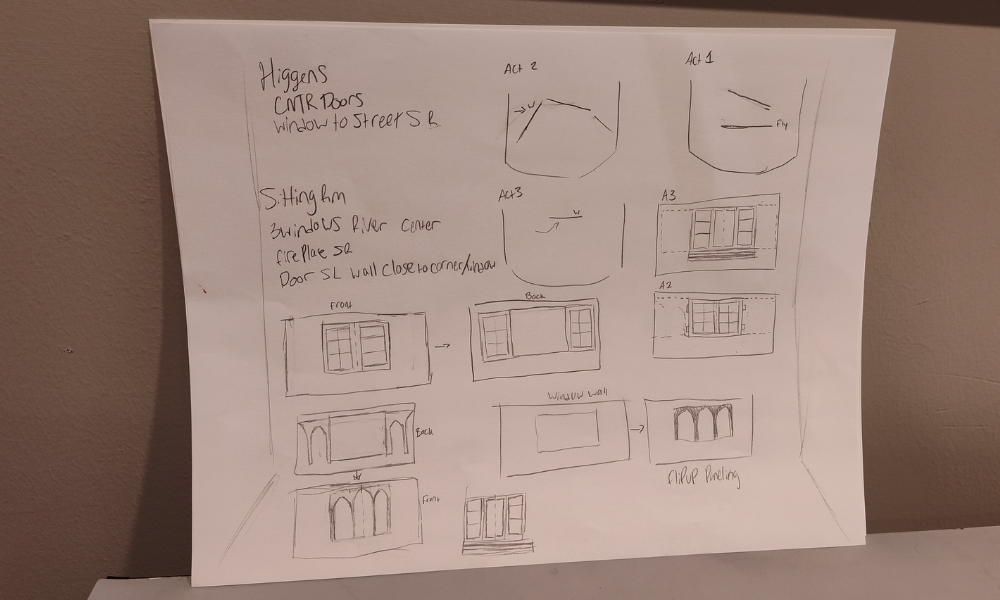 Higgens
CNTR Doors
window to Street S R
Act 2
W
Act 1
Fly
Sitting Rm
3 windows River Center
fire Place SR
Door SL Wall close to corner/window
Act 3
W
A3
A2
Front
Back
Back
Front
Window Wall
flip up Paneling